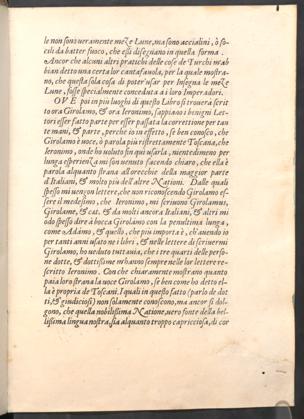 le non sono veramente meze Lune, ma sono accialini, ò fo-
cili da batter fuoco, che essi disegnano in questa forma.
Ancor che alcuni altri pratichi delle cose de Turchi m'ab
bian detto una certa lor cantafauola, per la quale mostra-
no, che questa sola cosa di poter'usar per Insegna le meze
Lune, fosse specialmente conceduta a i loro Imperadori.
OVE poi in piu luoghi di questo Libro si trouerà scrit
to ora Girolamo, & ora Ieronimo, sappiano i benigni Let-
tori esser fatto parte per esser passata la correttione per tan
te mani, & parte, perche io in effetto, se ben conosco, che
Girolamo è voce, ò parola piu ristrettamente Toscana, che
Ieronimo, onde ho voluto fin qui usarla, nientedimeno per
lunga esperienza mi son venuto facendo chiaro, che ella è
parola alquanto strana all'orecchie della maggior parte
d'Italiani, & molto piu dell'altre Nationi. Dalle quali
spesso mi vengon lettere, che non riconoscendo Girolamo es-
sere il medesimo, che Ieronimo, mi scriuono Girolamus,
Girolame, & cat. & da molti ancora Italiani, & altri mi
odo spesso dire à bocca Girolámo con la penultima lunga
come Adámo, & questo, che piu importa è, ch'auendo io
per tanti anni usato ne i libri, & nelle lettere di scriuermi
Girolamo, ho veduto tuttauia, che i tre quarti delle perso-
ne dotte, & dottissime m'hanno sempre nelle lor lettere re-
scritto Ieronimo. Con che chiaramente mostrano quanto
paia loro strana la voce Girolamo, se ben come ho detto el-
la è propria de Toscani. I quali in questo fatto (parlo de dot
ti, & giudiciosi) non solamente conoscono, ma ancor si dol-
gono, che quella nobilissima Natione, vero fonte della bel-
lissima lingua nostra, sia alquanto troppo capricciosa, di cor